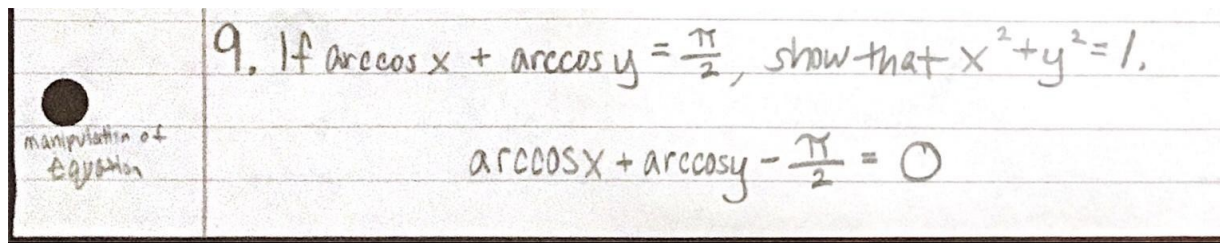 9. If arccos x + arccos y = π/2, show that x² + y² = 1.
manipulation of
Equation
arccosx + arccosy - π/2 = 0